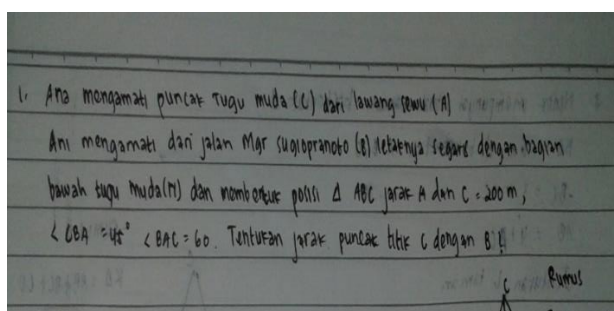 1. Ana mengamati puncak Tugu muda (C) dari lawang sewu (A)
Ani mengamati dari jalan Mgr sugiopranoto (B) letaknya segaris dengan bagian
bawah tugu muda (M) dan membentuk posisi Δ ABC jarak A dan C = 200 m,
∠ CBA = 45° ∠ BAC = 60. Tentukan jarak puncak titik C dengan B !
C Rumus